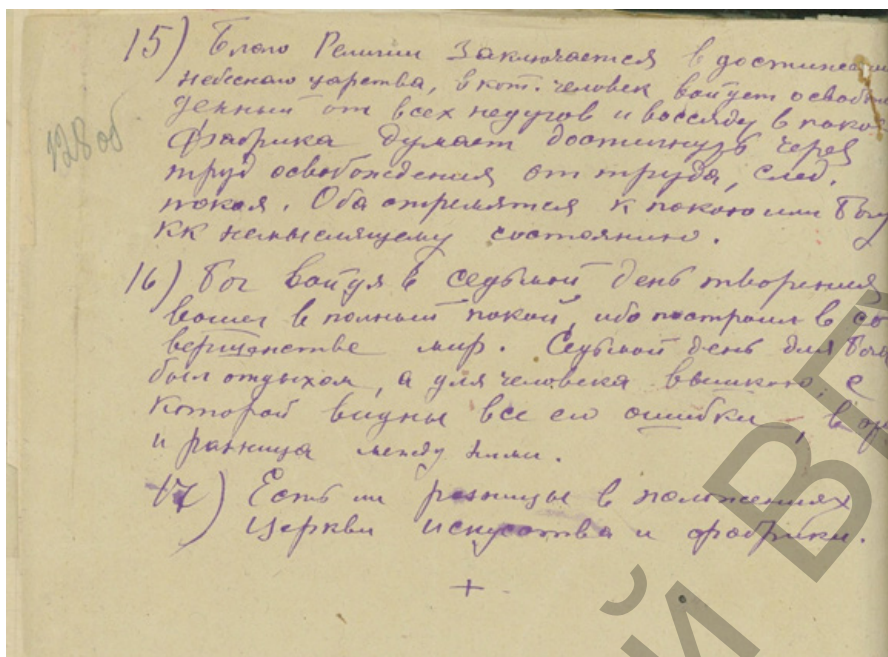 15) Благо Религии Заключается в достижении
небесного царства, в кот. человек войдет освобож
денный от всех недугов и воссяду в покой
128 об
Фабрика думает достигнуть через
труд освобождения от труда, след.
покоя. Оба стремятся к покою или Богу
кк немыслящему состоянию.
16) Бог войдя в седьмой день творения
вошел в полный покой, ибо построил в со
вершенстве мир. Седьмой день для Бога
был отдыхом, а для человека вышкою, с
которой видны все его ошибки,
и разница между ними.
17) Есть ли разницы в положениях
Церкви искусства и фабрики.
+
Й ВГ